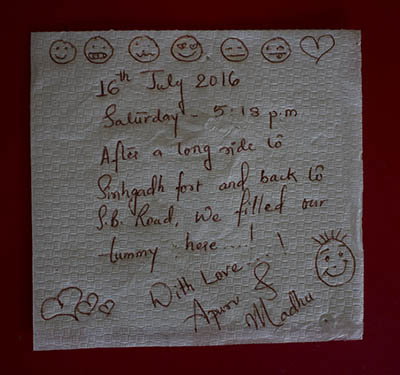 16th July 2016
Saturday - 5:18 p.m
After a long ride to
Sinhgadh fort and back to
S.B. Road, we filled our
tummy here....!
With Love...!
Apurv &
Madhu